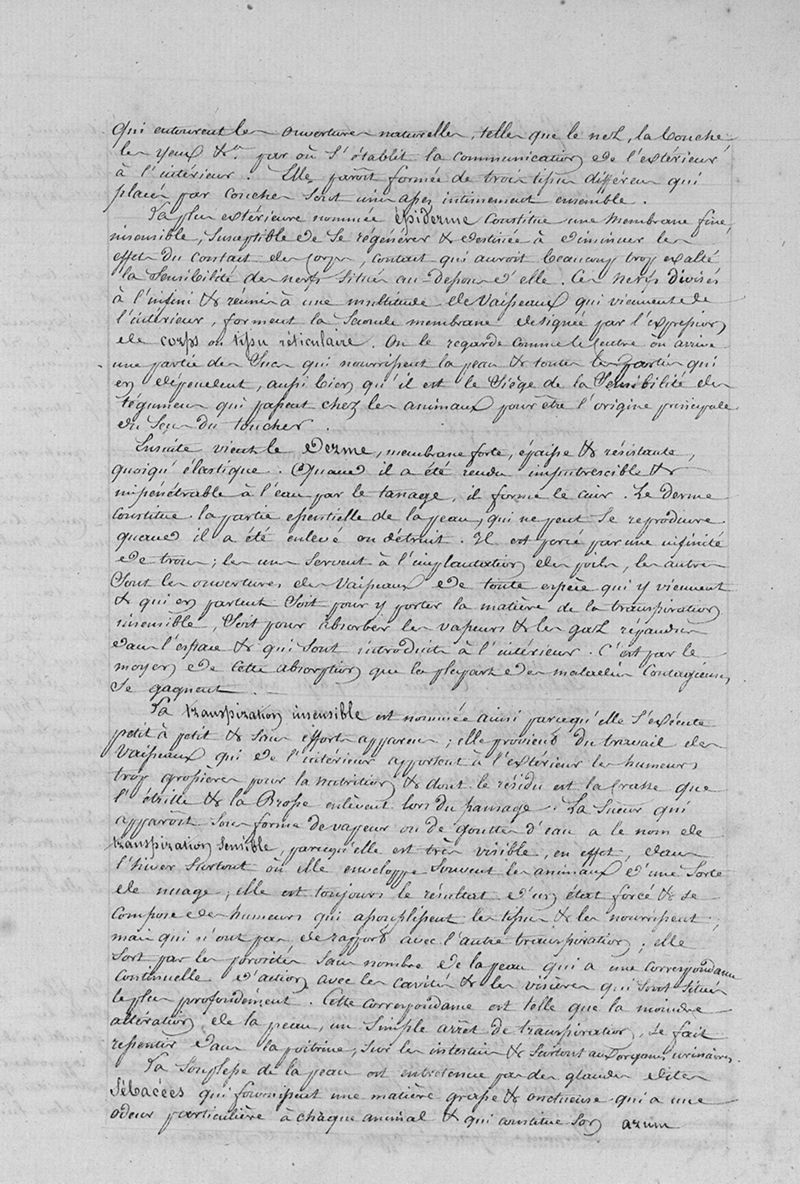 qui entourent les ouvertures naturelles, telles que le nez, la bouche,
les yeux &a. par où s'établit la communication de l'extérieur
à l'intérieur. Elle paroît formée de trois tissus différens qui
placés par couches sont unis assez intimement ensemble.
La plus extérieure nommée épiderme constitue une membrane fine,
insensible, susceptible de se régénérer & destinée à diminuer les
effets du contact des corps, contact qui auroit beaucoup trop exalté
la sensibilité des nerfs situés au-dessous d'elle. Ces nerfs divisés
à l'infini & réunis à une multitude de vaisseaux qui viennent de
l'intérieur, forment la seconde membrane désignée par l'expression
de corps ou tissu réticulaire. On le regarde comme le centre où arrive
une partie des sucs qui nourrissent la peau & toutes les parties qui
en dépendent, aussi bien qu'il est le siège de la sensibilité des
tégumens qui passent chez les animaux pour être l'origine principale
du sens du toucher.
Ensuite vient le derme, membrane forte, épaisse & résistante,
quoiqu'élastique. Quand il a été rendu imputrescible &
impénétrable à l'eau par le tanage, il forme le cuir. Le derme
constitue la partie essentielle de la peau, qui ne peut se reproduire
quand il a été enlevé ou détruit. Il est percé par une infinité
de trous; les uns servent à l'implantation des poils, les autres
sont les ouvertures des vaisseaux de toute espèce qui y viennent
& qui en partent soit pour y porter la matière de la transpiration
insensible, soit pour absorber les vapeurs & les gaz répandus
dans l'espace & qui sont introduits à l'intérieur. C'est par le
moyen de cette absorption que la plupart des maladies contagieuses
se gagnent.
La transpiration insensible est nommée ainsi parcequ'elle s'exécute
petit à petit & sans efforts apparens; elle provient du travail des
vaisseaux qui de l'intérieur apportent à l'extérieur les humeurs
trop grossières pour la nutrition & dont le résidu est la crasse que
l'étrille & la Brosse enlèvent lors du pansage. La sueur qui
apparoît sous forme de vapeur ou de gouttes d'eau a le nom de
transpiration sensible, parcequ'elle est très visible, en effet, dans
l'hiver surtout où elle enveloppe souvent les animaux d'une sorte
de nuage; elle est toujours le résultat d'un état forcé & se
compose des humeurs qui assouplissent les tissus & les nourrissent,
mais qui n'ont pas de rapport avec l'autre transpiration; elle
sort par les porosités sans nombre de la peau qui a une correspondance
continuelle d'action avec les cavités & les viscères qui sont situés
le plus profondément. Cette correspondance est telle que la moindre
altération de la peau, un simple arrêt de transpiration, se fait
ressentir dans la poitrine, sur les intestins & surtout aux organes urinaires.
La souplesse de la peau est entretenue par des glandes dites
sébacées qui fournissent une matière grasse & onctueuse qui a une
odeur particulière à chaque animal & qui constitue son arum